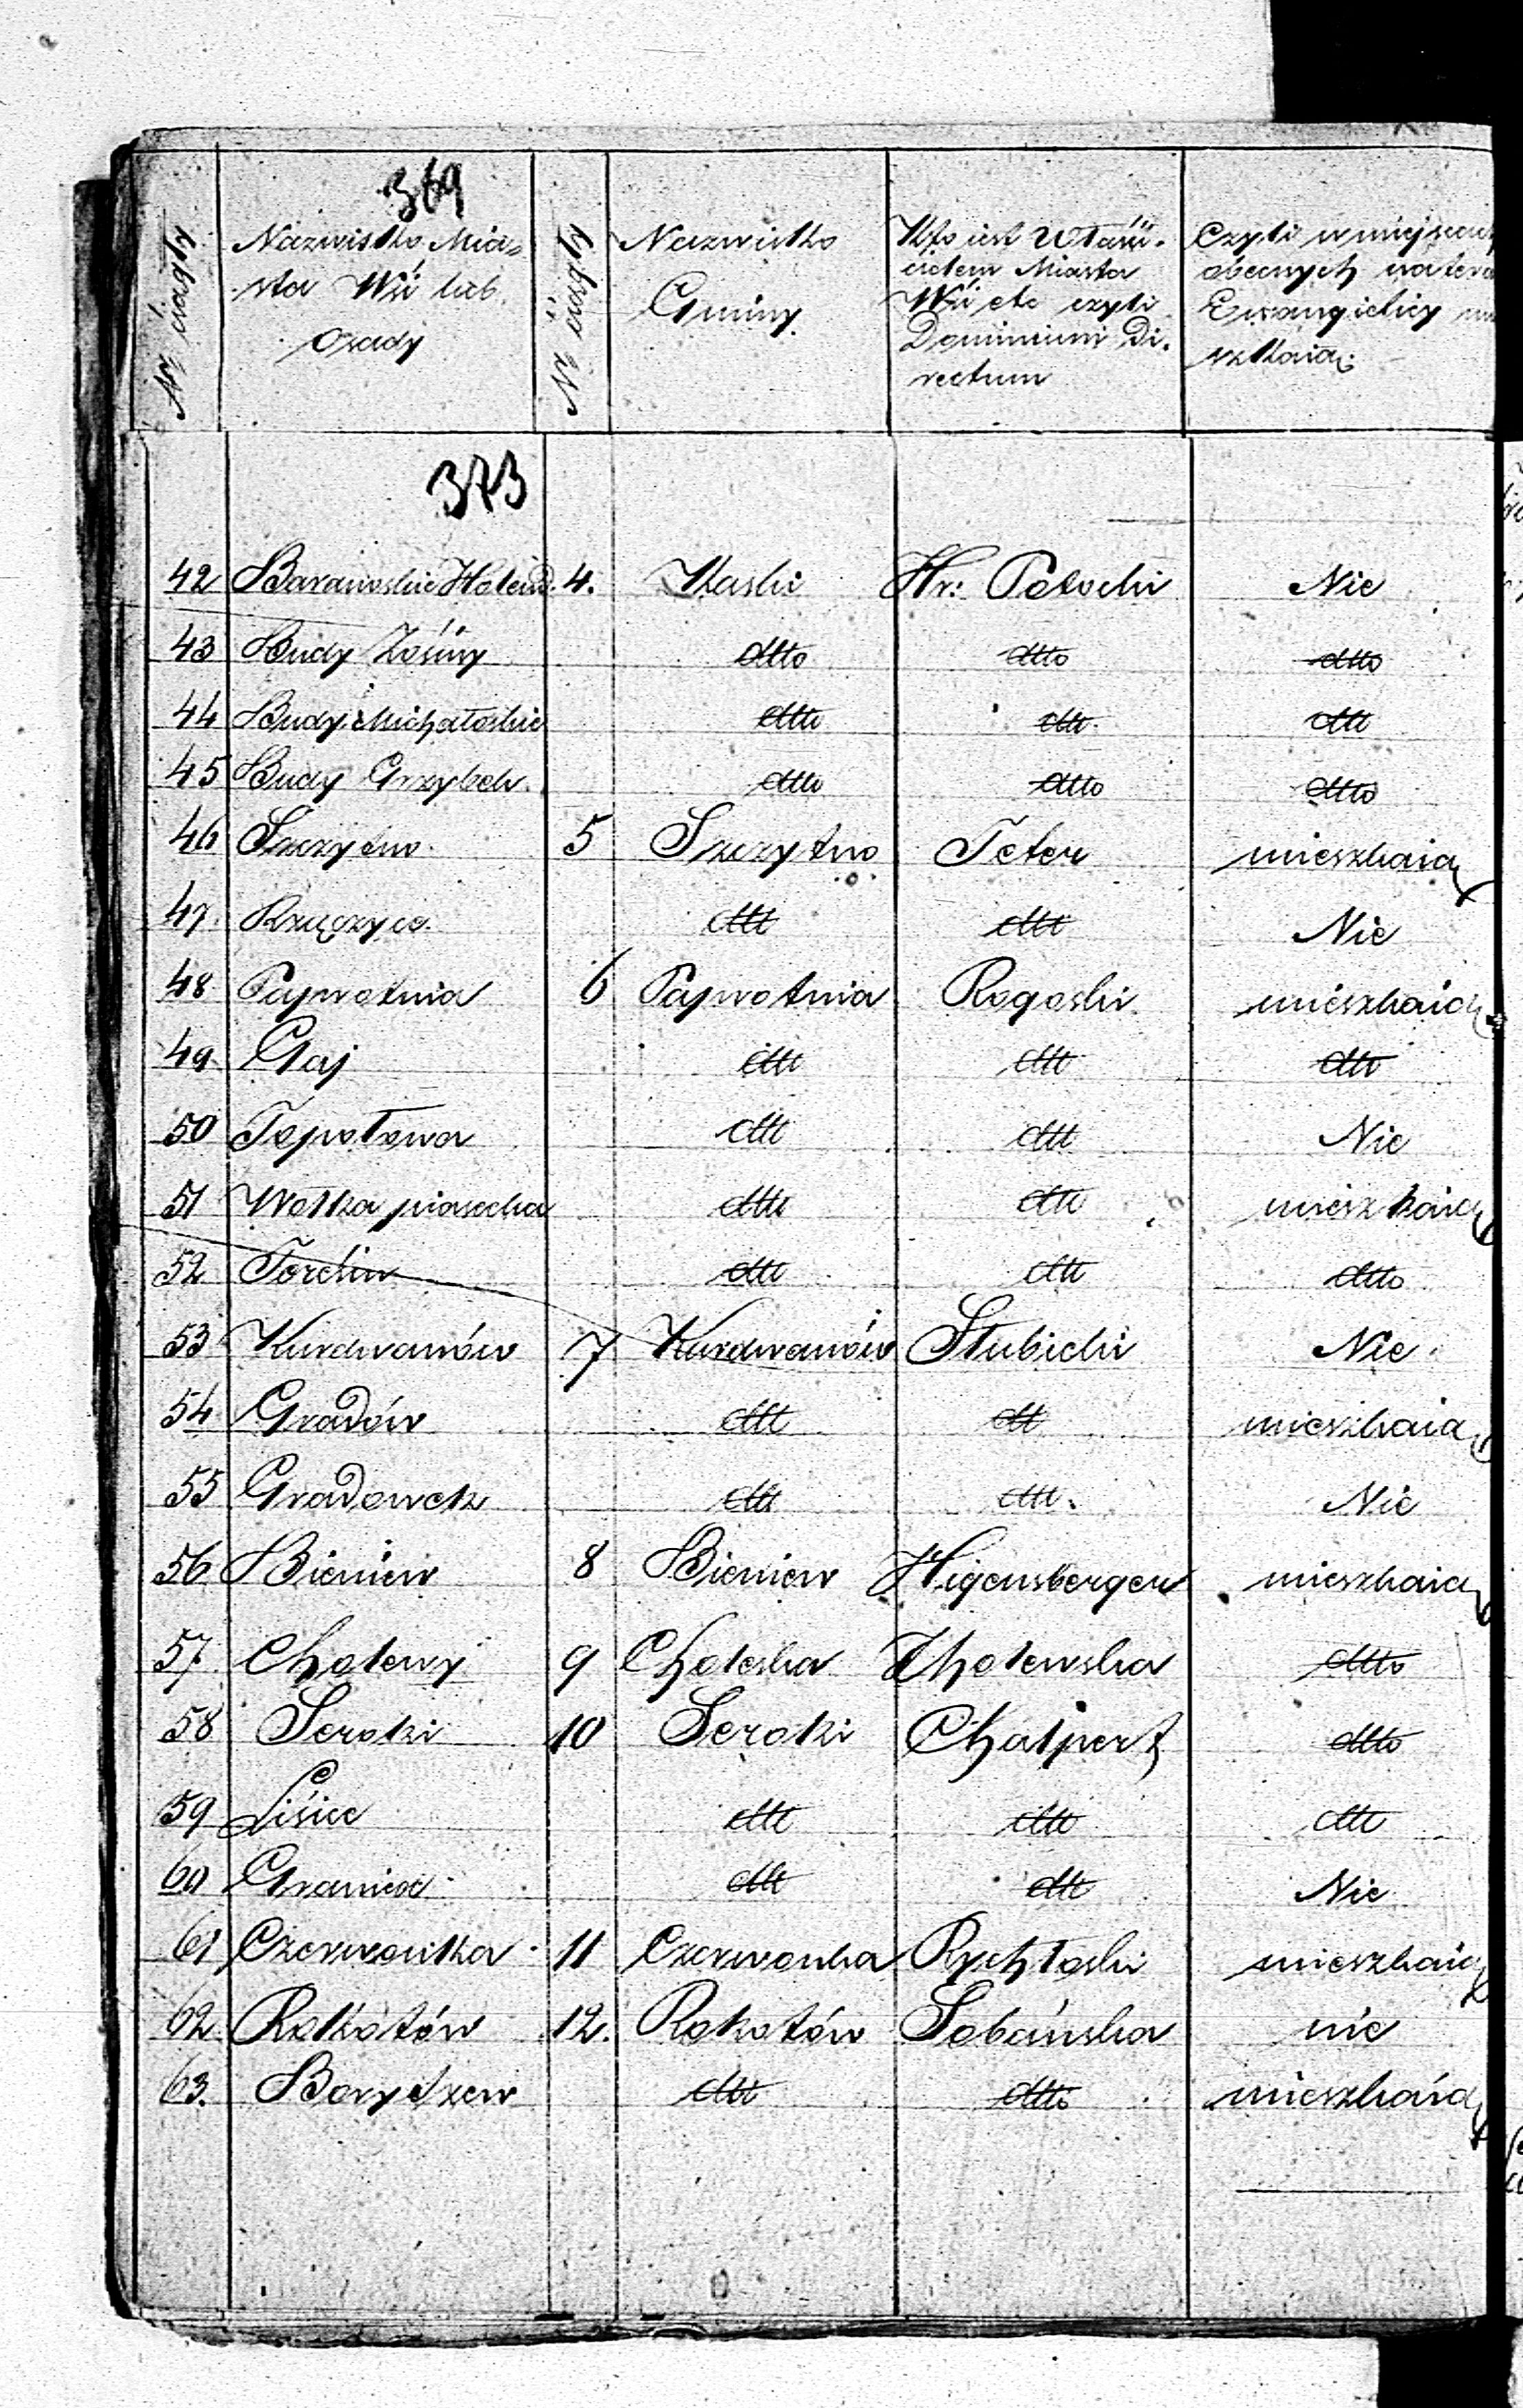 369
Nr ciągły Nazwisko Mia- Nr ciągły Nazwisko Kto iest Właśi- Czyli w miejscach
sta Wsi lub Gminy cielem Miasta obecnych
osady Wsi etc czyli Ewangielicy
Dominium Di- szkaią
rectum
373
42 Baranoskie Holend. 4. Kaski Hr: Potocki Nie
43 Budy Zośiny dtto dtto dtto
44 Budy Michałoskie dtto dtto dtto
45 Budy Grzybek dtto dtto dtto
46 Szczytno 5 Szczytno Teter mieszkaią
47. dtt dtt Nie
48 Paprotnia 6 Paprotnia Rogoski mieszkaią
49 Gaj dtt dtt dtto
50 Topołowa dtt dtt Nie
51 Wolka piasecka dtto dtt mieszkaią
52 dtt dtt dtto
53 Kurdwanów 7 Kurdwanów Słubicki Nie
54 Gradów dtt dtt mieszkaią
55 Gradowek dtt dtt. Nie
56 Bieniew 8 Bieniew Higensberger mieszkaią
57. Cholewy 9 Choleska Cholewska dtto
58 Seroki 10 Seroki Chalpert dtto
59 Lisice dtt dtt dtt
60 Granice dtt dtt Nie
61 Czerwonka 11 Czerwonka Rychłoski mieszkaią
62 Rokotów 12. Rokotów Sobańska nie
63. Boryszew dtt dtto mieszkaią